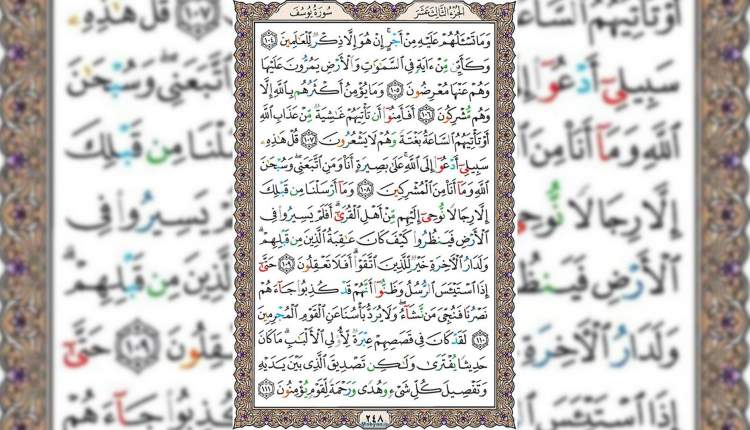 الجزء الثالث عشر
سورة يوسف
وَمَا تَسْـَٔلُهُمْ عَلَيْهِ مِنْ أَجْرٍ إِنْ هُوَ إِلَّا ذِكْرٌ لِّلْعَٰلَمِينَ ١٠٤
وَكَأَيِّن مِّنْ ءَايَةٍ فِي السَّمَٰوَٰتِ وَالْأَرْضِ يَمُرُّونَ عَلَيْهَا
وَهُمْ عَنْهَا مُعْرِضُونَ ١٠٥ وَمَا يُؤْمِنُ أَكْثَرُهُم بِاللَّهِ إِلَّا
وَهُم مُّشْرِكُونَ ١٠٦ أَفَأَمِنُوٓا۟ أَن تَأْتِيَهُمْ غَٰشِيَةٌ مِّنْ عَذَابِ اللَّهِ
أَوْ تَأْتِيَهُمُ السَّاعَةُ بَغْتَةً وَهُمْ لَا يَشْعُرُونَ ١٠٧ قُلْ هَٰذِهِۦ
سَبِيلِىٓ أَدْعُوٓا۟ إِلَى اللَّهِ عَلَىٰ بَصِيرَةٍ أَنَا۠ وَمَنِ اتَّبَعَنِى وَسُبْحَٰنَ
اللَّهِ وَمَآ أَنَا۠ مِنَ الْمُشْرِكِينَ ١٠٨ وَمَآ أَرْسَلْنَا مِن قَبْلِكَ
إِلَّا رِجَالًا نُّوحِىٓ إِلَيْهِم مِّنْ أَهْلِ الْقُرَىٰٓ أَفَلَمْ يَسِيرُوا۟ فِى
الْأَرْضِ فَيَنظُرُوا۟ كَيْفَ كَانَ عَٰقِبَةُ الَّذِينَ مِن قَبْلِهِمْ
وَلَدَارُ الْءَاخِرَةِ خَيْرٌ لِّلَّذِينَ اتَّقَوْا۟ أَفَلَا تَعْقِلُونَ ١٠٩ حَتَّىٰٓ
إِذَا اسْتَيْـَٔسَ الرُّسُلُ وَظَنُّوٓا۟ أَنَّهُمْ قَدْ كُذِبُوا۟ جَآءَهُمْ
نَصْرُنَا فَنُجِّىَ مَن نَّشَآءُ وَلَا يُرَدُّ بَأْسُنَا عَنِ الْقَوْمِ الْمُجْرِمِينَ
١١٠ لَقَدْ كَانَ فِى قَصَصِهِمْ عِبْرَةٌ لِّأُو۟لِى الْأَلْبَٰبِ مَا كَانَ
حَدِيثًا يُفْتَرَىٰ وَلَٰكِن تَصْدِيقَ الَّذِى بَيْنَ يَدَيْهِ
وَتَفْصِيلَ كُلِّ شَىْءٍ وَهُدًى وَرَحْمَةً لِّقَوْمٍ يُؤْمِنُونَ ١١١
٢٤٨